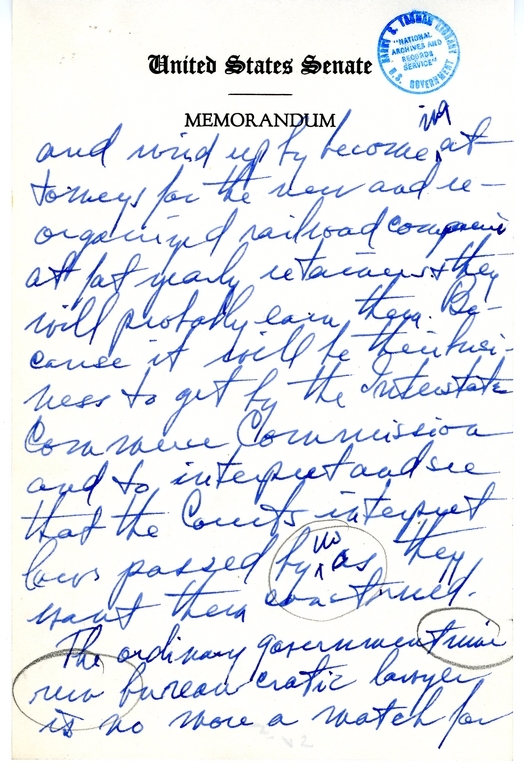 HARRY S. TRUMAN LIBRARY
"NATIONAL
ARCHIVES AND
RECORDS
SERVICE"
U.S. GOVERNMENT
United States Senate
MEMORANDUM
ing
and wind up by become at-
torneys for the new and re-
organized railroad companies
at fat yearly retainers & they
will probably earn them. Be-
cause it will be their busi-
ness to get by the Interstate
Commerce Commission
and to interpret and see
that the Courts interpret
us
laws passed by as they
want them construed.
The ordinary government mine
run bureaucratic lawyer
is no more a match for